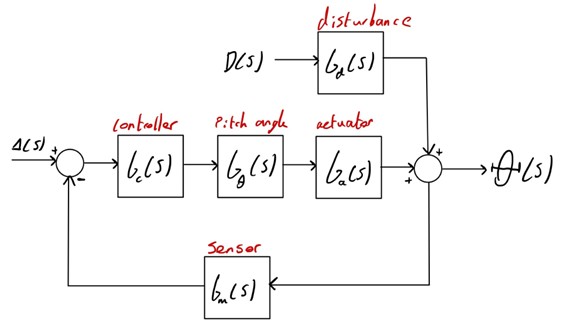 disturbance
D(s)
G_d(s)
controller
Pitch angle
actuator
Δ(s)
+
-
G_c(s)
G_θ(s)
G_a(s)
+
+
Θ(s)
Sensor
G_m(s)